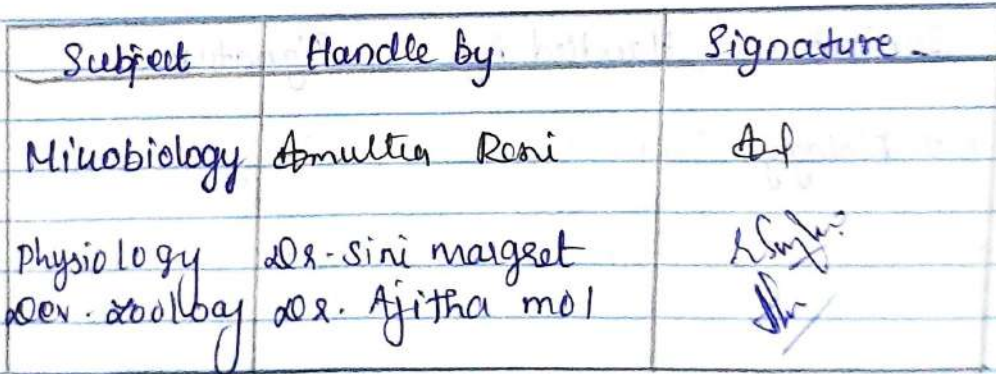 Subject Handle by. Signature -
Microbiology Amultia Rani
Physiology Dr. Sini margret
Dev. zoology Dr. Ajitha mol